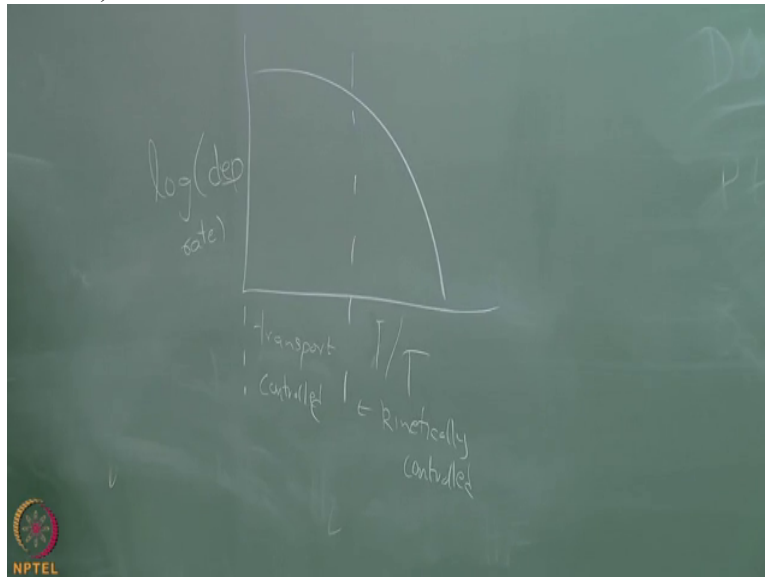 log(dep
rate)
1/T
transport
controlled
← kinetically
controlled
NPTEL